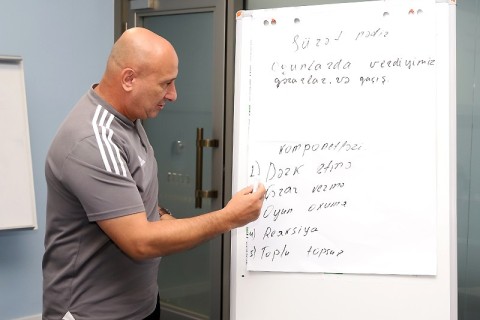 Sürət nədir
Oyunlarda verdiyimiz
qərarlar. və qaçış.
Komponentləri
1) Dərk etmə
Qərar vermə
Oyun oxuma
4) Reaksiya
5) Topla topsuz